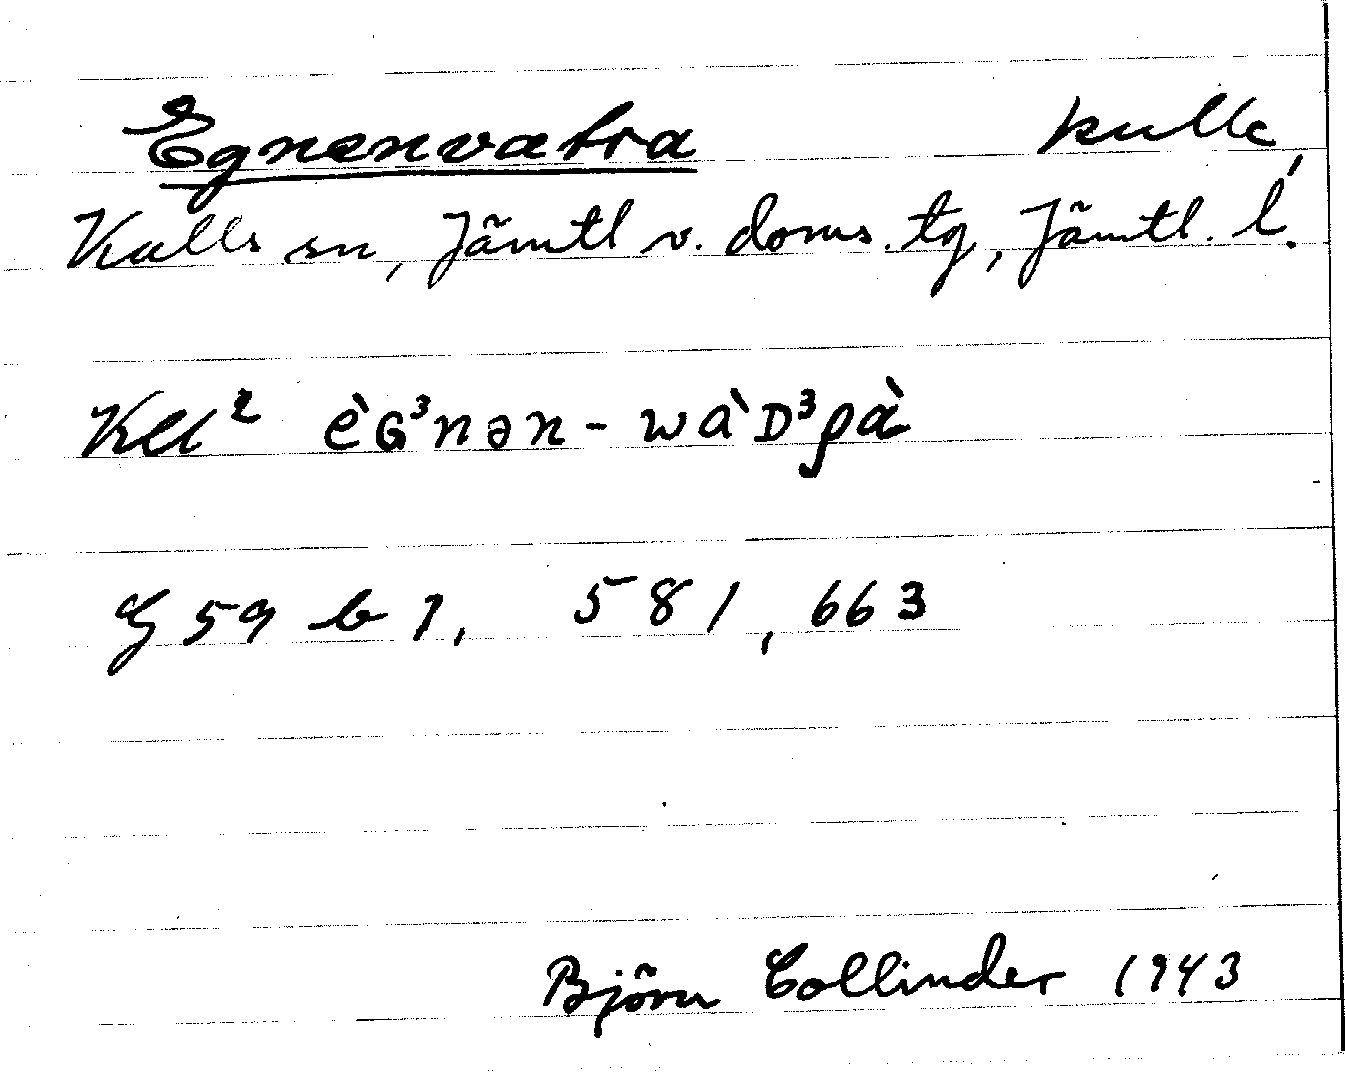 Egnenvatra kulle,
Kalls sn, Jämtl v. doms. tg, Jämtl. l.
Kll² èG³nən-wàD³ρà
G 59 b 1, 581, 663
Björn Collinder 1943